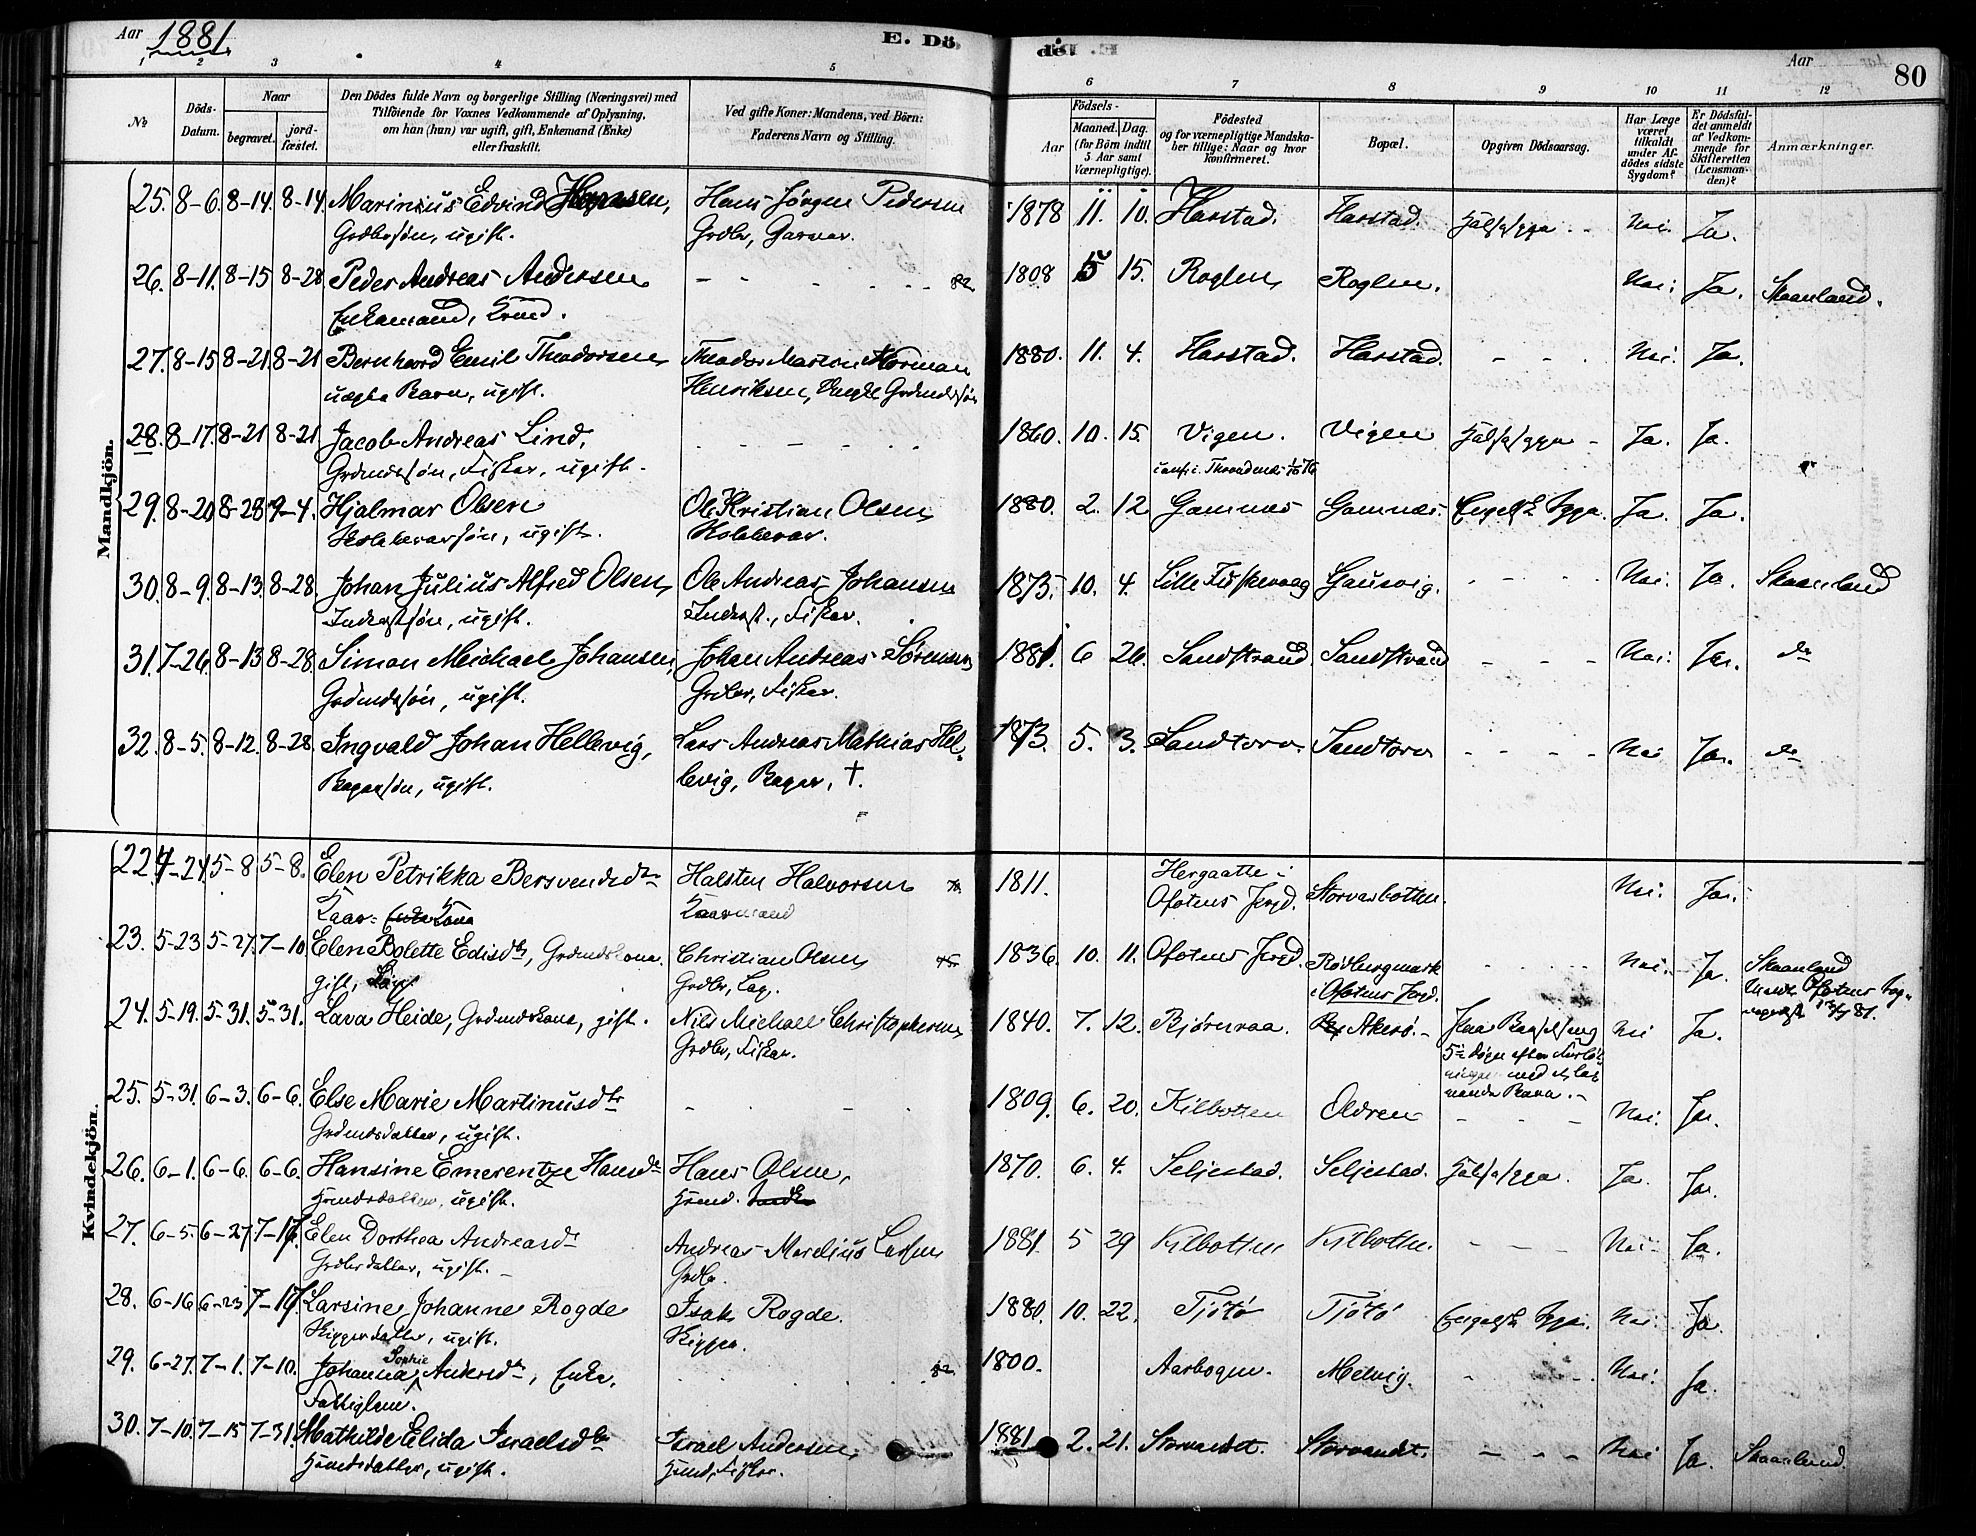 Aar 1881
E. Dö
E. Dö.
Aar
80
1 2 3 4 5 6 7 8 9 10 11 12
№
Döds-
Datum.
Naar
begravet.
jord-
fæstet.
Den Dödes fulde Navn og borgerlige Stilling (Næringsvei) med
Tilföiende for Voxnes Vedkommende af Oplysning,
om han (hun) var ugift, gift, Enkemand (Enke)
eller fraskilt.
Ved gifte Koner: Mandens, ved Börn:
Faderens Navn og Stilling.
Födsels-
Aar
Maaned. Dag.
(for Börn indtil
5 Aar samt
Værnepligtige).
Födested
og for værnepligtige Mandska-
ber tillige: Naar og hvor
konfirmeret.
Bopæl.
Opgiven Dödsaarsag.
Har Læge
været
tilkaldt
under Af-
dödes sidste
Sygdom?
Er Dödsfal-
det anmeldt
af Vedkom-
mende for
Skifteretten
(Lensman-
den)?
Anmærkninger.
Mandkjön.
25. 8-6. 8-14. 8-14. Marinius Edvind Hansen, Hans Jørgen Pedersen 1878 11. 10. Harstad. Harstad. Halssyge Nei. Ja.
Grdbrsøn, ugift. Grdbr, Garver.
26. 8-11. 8-15 8-28 Peder Andreas Andersen 82 1808 5 15. Roglen Roglen. Nei. Ja. Skaanland.
Enkemand, Grmd.
27. 8-15 8-21. 8-21 Bernhard Emil Theodorsen Theodor Marton Norman 1880. 11. 4. Harstad. Harstad. Nei. Ja.
uægte Barn, ugift. Henriksen, Grdmdssøn
28. 8-17. 8-21 8-21 Jacob Andreas Lind, 1860. 10. 15. Vigen. Vigen Halssyge Ja. Ja.
Grdmdssøn, Fisker, ugift.
29. 8-20 8-28 9-4. Hjalmar Olsen Ole Kristian Olsen 1880. 2. 12 Gamnes Gamnes. Engelsk Syge. Ja. Ja.
ugift.
30. 8-9. 8-13. 8-28. Johan Julius Alfred Olsen, Ole Andreas Johansen 1875. 10. 4. Lille Fiskevaag Gausvig. Nei. Ja. Skaanland
Inderstsøn, ugift. Inderst., Fisker.
31. 7-26. 8-13 8-28. Simon Meichael Johansen, Johan Andreas Sørensen 1881. 6 26. Sandstrand Sandstrand Nei. Ja. do
Grdmdssøn, ugift. Grdbr, Fisker.
32. 8-5. 8-12. 8-28. Ingvald Johan Hellevig, Lars Andreas Mathias Hel- 1873. 5. 3. Sandtorv Sandtorv Nei Ja. do
Bagersøn, ugift. levig, Bager, †.
Kvindekjön.
22. 4-24. 5-8 5-8. Elen Petrikka Bersvendsdtr Halsten Halvorsen 1811. Hergaatte i Storvasbotten. Nei. Ja.
Ofotens Prgjd.
23. 5-23 5-27. 7-10 Elen Bolette Edisdtr, Grdmdskone. Christian Olsen 1836. 10. 11. Ofotens Prgjd. Rødbergmark Nei. Ja. Skaanland
gift, Lap. Grdbr, Lap. i Ofotens Prgjd. Ofotens
24. 5-19. 5-31. 5-31. Lava Heide, Grdmdskone, gift. Nils Michael Christophersen 1840. 7. 12. Bjørnraa. Akerø. Nei Ja.
Grdbr, Fisker.
25. 5-31. 6-3. 6-6. Else Marie Martinusdtr 1809. 6. 20. Kilbotten Oldren Nei. Ja.
Grdmdsdatter, ugift.
26. 6-1. 6-6. 6-6. Hansine Emerentze Hansdtr Hans Olsen, 1870. 6. 4. Seljestad. Seljestad. Halssyge. Ja. Ja.
Hsmdsdatter, ugift. Hsmd.
27. 6-5. 6-27 7-17. Elen Dorthea Andreasdtr Andreas Mordius Larsen 1881. 5 29 Kilbotten Kilbotten. Nei Ja.
Grdbrsdatter, ugift. Grdbr.
28. 6-16 6-23 7-17 Larsine Johanne Rogde Isak Rogde. 1880. 10. 22. Tjøtø Tjøtø Engelsk Syge. Nei. Ja.
Skipperdatter, ugift. Skipper.
29. 6-27. 7-1. 7-10. Johanna Sophie Andersdtr, Enke. 82 1800. Aarbogen. Melvig. Nei. Ja.
Fattiglem.
30. 7-10. 7-15 7-31. Mathilde Elida Israelsdtr Israel Andersen 1881. 2. 21. Storvandet. Storvandet. Nei Ja. Skaanland.
Hsmdsdatter, ugift. Hsmd, Fisker.